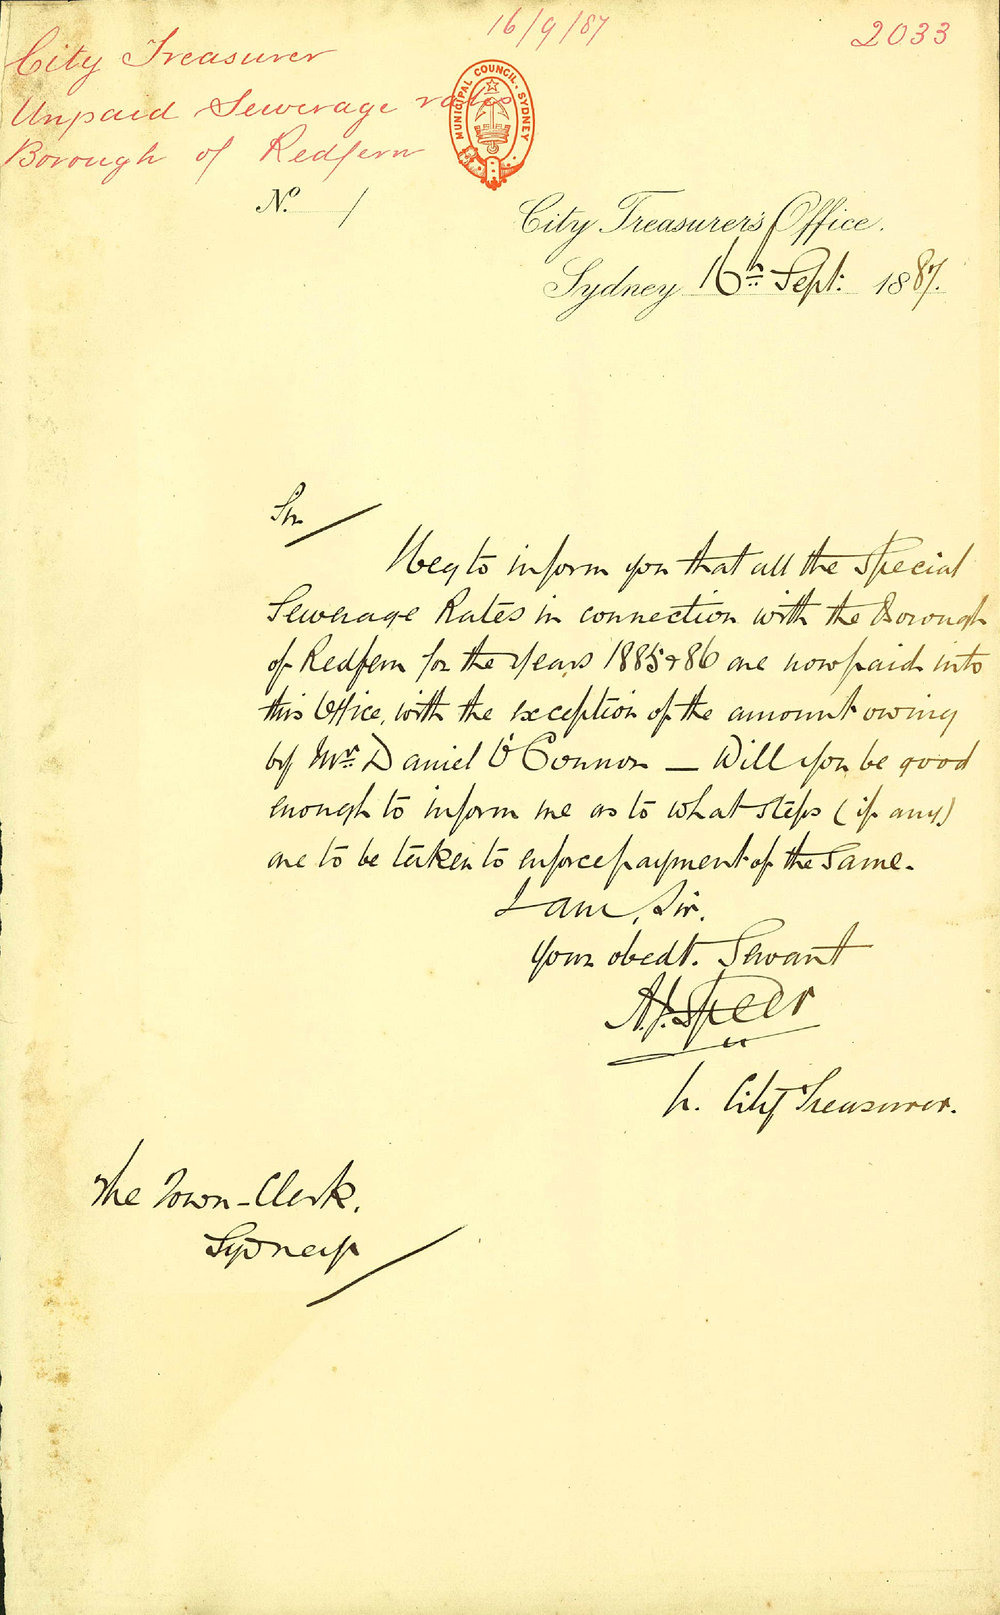 16/9/87
2033
City Treasurer
Unpaid Sewerage rates
Borough of Redfern
MUNICIPAL COUNCIL. SYDNEY
No. /
City Treasurer's Office.
Sydney 16th Sept: 1887.
Sir
I beg to inform you that all the Special
Sewerage Rates in connection with the Borough
of Redfern for the years 1885 & 86 are now paid into
this Office, with the exception of the amount owing
by Mr. Daniel O'Connor — Will you be good
enough to inform me as to what steps (if any)
are to be taken to enforce payment of the same.
I am, Sir.
Your obedt. Servant
A.J. Speer
City Treasurer.
The Town-Clerk.
Sydney